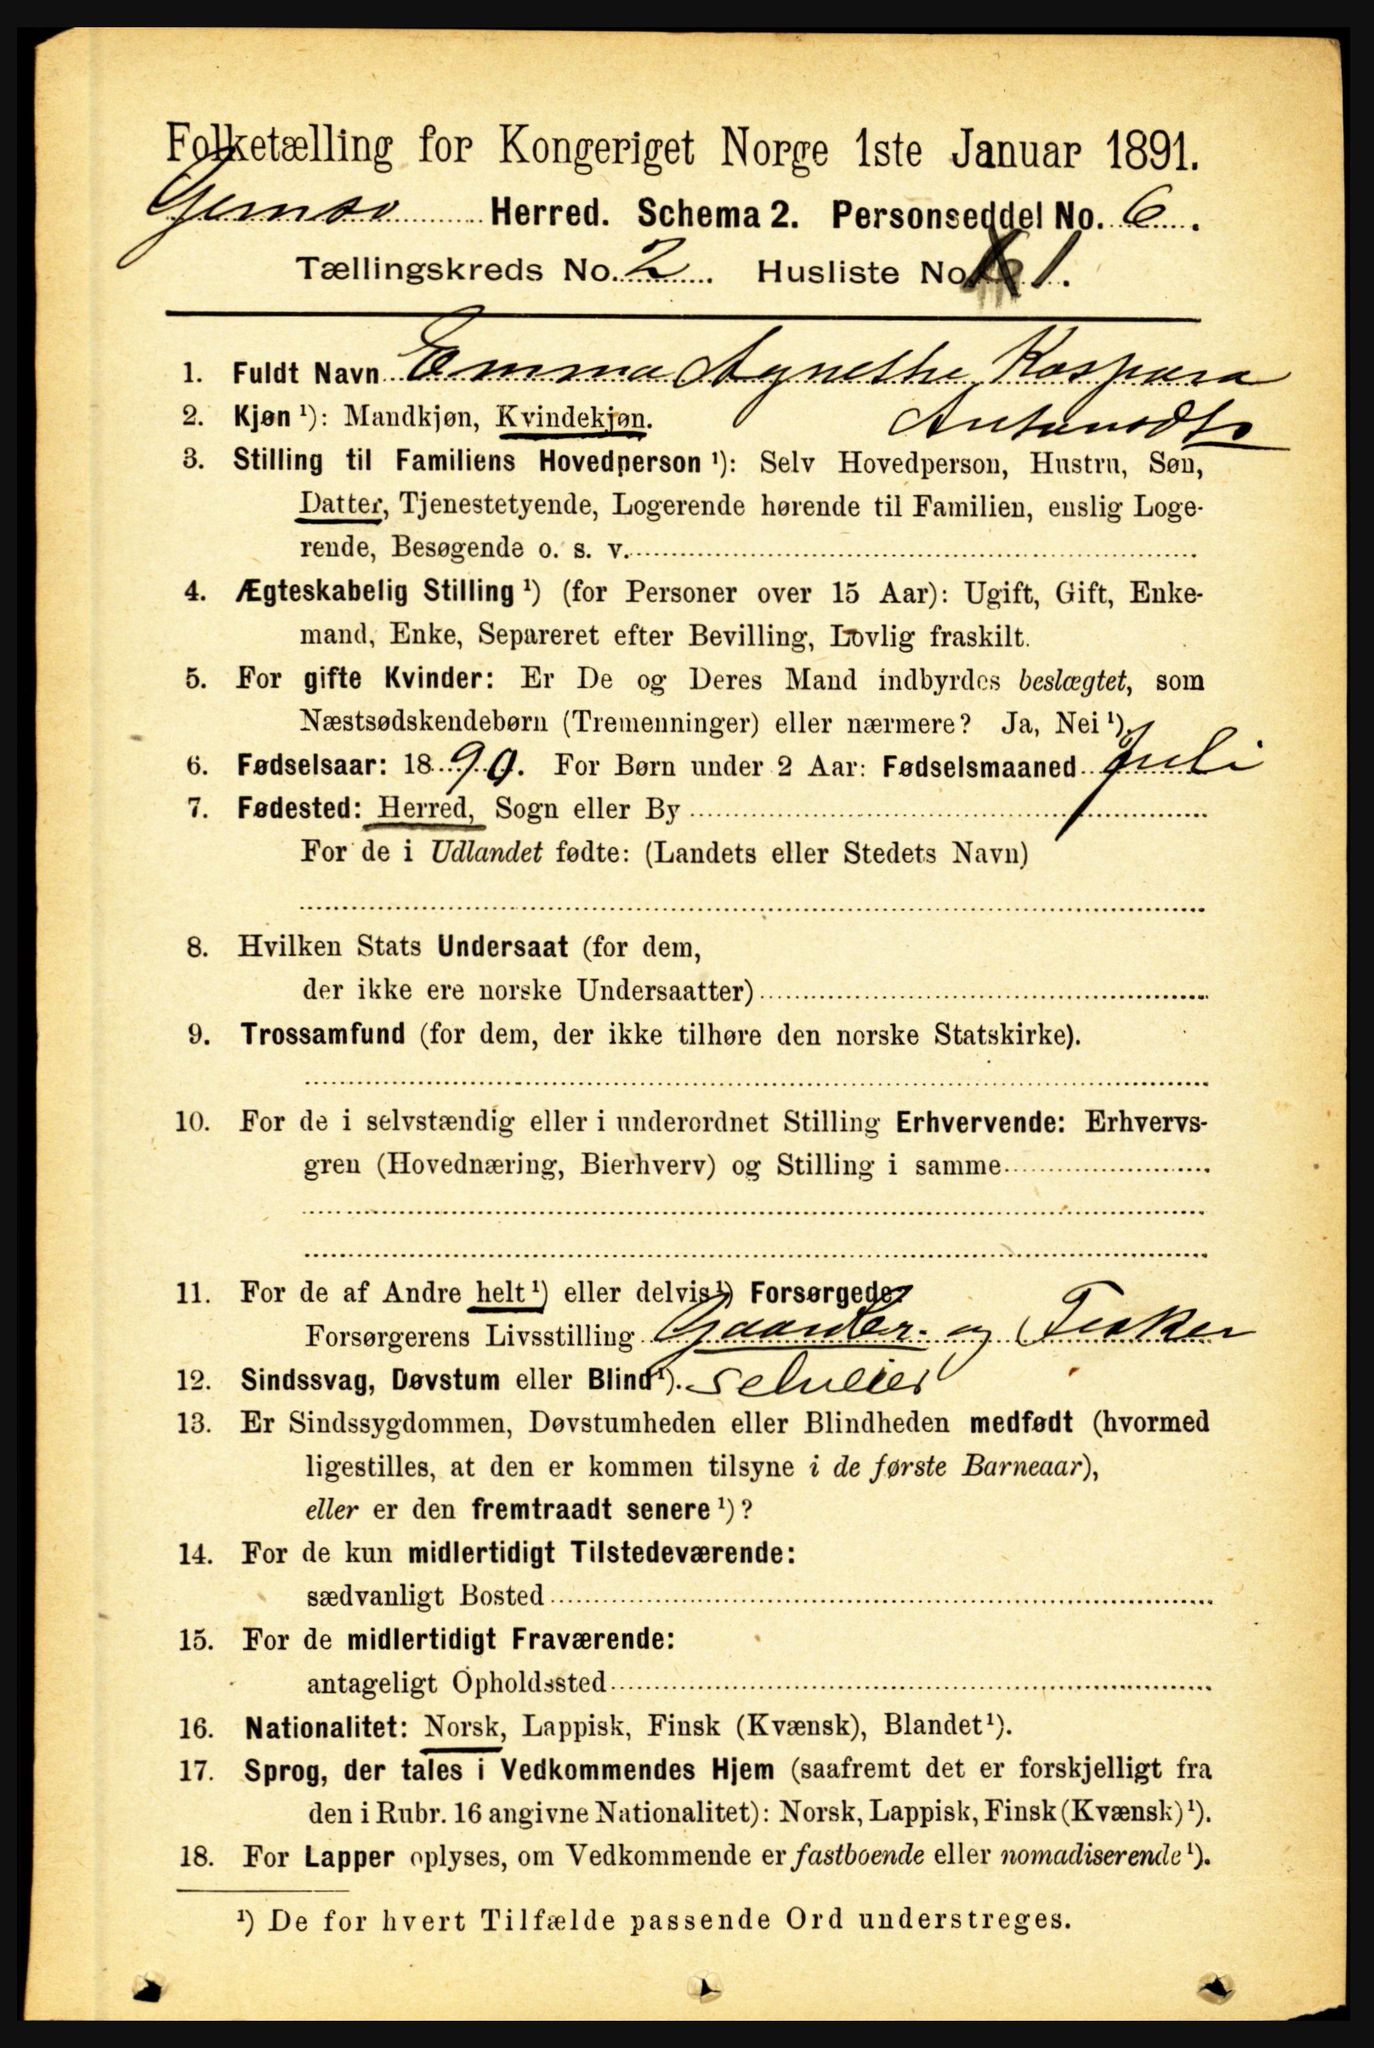 Folketælling for Kongeriget Norge 1ste Januar 1891.
Gimsø Herred. Schema 2. Personseddel No. 6.
Tællingskreds No. 2. Husliste No. 1.
1. Fuldt Navn Emma Agnethe Kaspara
2. Kjøn ¹): Mandkjøn, Kvindekjøn.
3. Stilling til Familiens Hovedperson ¹): Selv Hovedperson, Hustru, Søn,
Datter, Tjenestetyende, Logerende hørende til Familien, enslig Loge-
rende, Besøgende o. s. v.
4. Ægteskabelig Stilling ¹) (for Personer over 15 Aar): Ugift, Gift, Enke-
mand, Enke, Separeret efter Bevilling, Lovlig fraskilt.
5. For gifte Kvinder: Er De og Deres Mand indbyrdes beslægtet, som
Næstsødskendebørn (Tremenninger) eller nærmere? Ja, Nei ¹).
6. Fødselsaar: 1890. For Børn under 2 Aar: Fødselsmaaned Juli
7. Fødested: Herred, Sogn eller By
For de i Udlandet fødte: (Landets eller Stedets Navn)
8. Hvilken Stats Undersaat (for dem,
der ikke ere norske Undersaatter)
9. Trossamfund (for dem, der ikke tilhøre den norske Statskirke).
10. For de i selvstændig eller i underordnet Stilling Erhvervende: Erhvervs-
gren (Hovednæring, Bierhverv) og Stilling i samme
11. For de af Andre helt ¹) eller delvis ¹) Forsørgede,
Forsørgerens Livsstilling Gaardbr. og Fisker
12. Sindssvag, Døvstum eller Blind ¹). selveier
13. Er Sindssygdommen, Døvstumheden eller Blindheden medfødt (hvormed
ligestilles, at den er kommen tilsyne i de første Barneaar),
eller er den fremtraadt senere ¹)?
14. For de kun midlertidigt Tilstedeværende:
sædvanligt Bosted
15. For de midlertidigt Fraværende:
antageligt Opholdssted
16. Nationalitet: Norsk, Lappisk, Finsk (Kvænsk), Blandet ¹).
17. Sprog, der tales i Vedkommendes Hjem (saafremt det er forskjelligt fra
den i Rubr. 16 angivne Nationalitet): Norsk, Lappisk, Finsk (Kvænsk) ¹).
18. For Lapper oplyses, om Vedkommende er fastboende eller nomadiserende ¹).
¹) De for hvert Tilfælde passende Ord understreges.